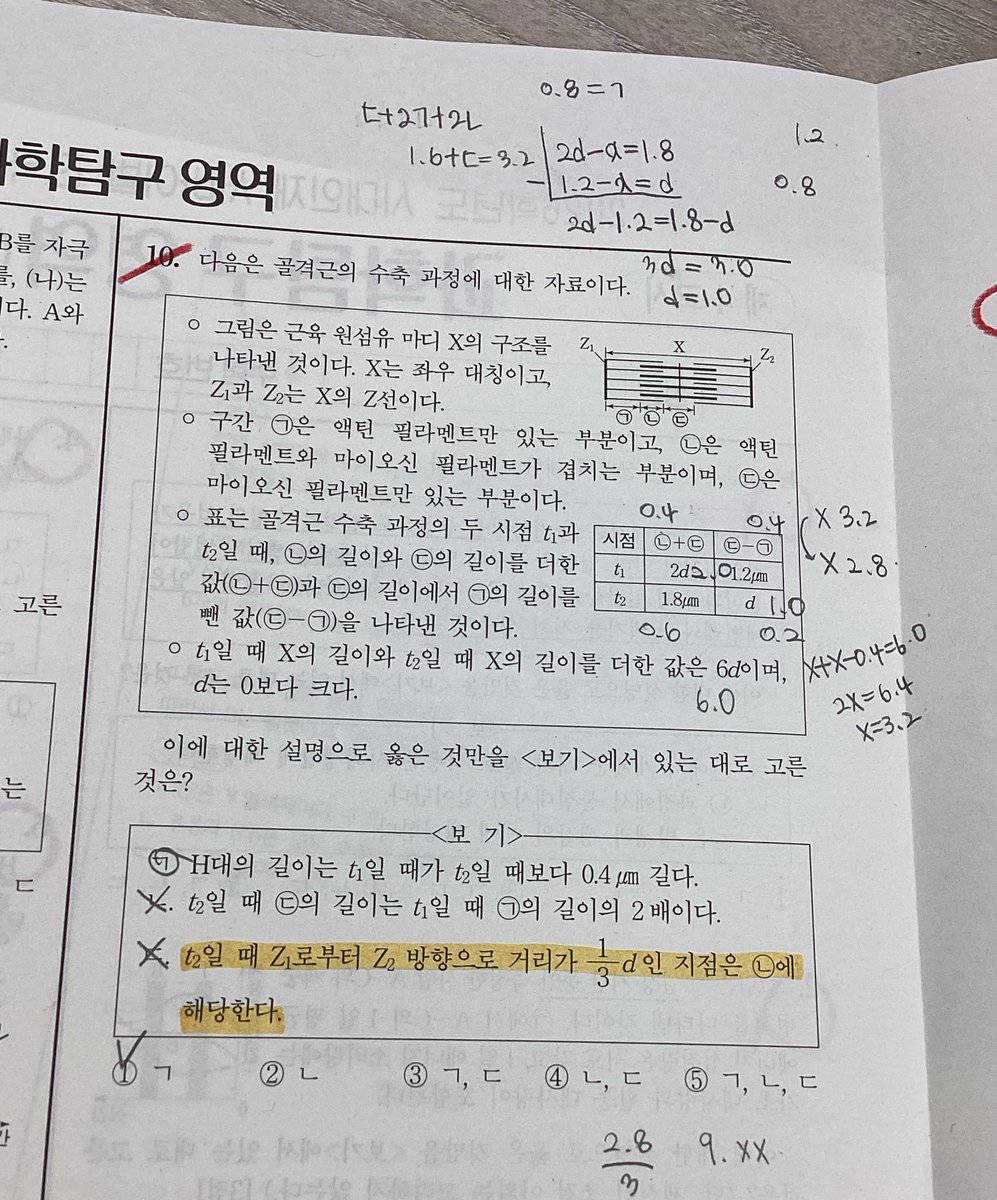 0.8=ㄱ
ㄷ+2ㄱ+2ㄴ
1.6+ㄷ=3.2
2d-a=1.8
1.2-a=d
2d-1.2=1.8-d
3d=3.0
d=1.0
1.2
0.8
과학탐구 영역
B를 자극
를, (나)는
다. A와
고른
는
ㄷ
10. 다음은 골격근의 수축 과정에 대한 자료이다.
○ 그림은 근육 원섬유 마디 X의 구조를
나타낸 것이다. X는 좌우 대칭이고,
Z₁과 Z₂는 X의 Z선이다.
Z₁ X Z₂
㉠ ㉡ ㉢
○ 구간 ㉠은 액틴 필라멘트만 있는 부분이고, ㉡은 액틴
필라멘트와 마이오신 필라멘트가 겹치는 부분이며, ㉢은
마이오신 필라멘트만 있는 부분이다.
○ 표는 골격근 수축 과정의 두 시점 t₁과
t₂일 때, ㉡의 길이와 ㉢의 길이를 더한
값(㉡+㉢)과 ㉢의 길이에서 ㉠의 길이를
뺀 값(㉢-㉠)을 나타낸 것이다.
0.4 0.4
시점 ㉡+㉢ ㉢-㉠
t₁ 2d 2.0 1.2㎛
t₂ 1.8㎛ d 1.0
0.6 0.2
X 3.2
X 2.8
○ t₁일 때 X의 길이와 t₂일 때 X의 길이를 더한 값은 6d이며,
d는 0보다 크다.
6.0
X+X-0.4=6.0
2X=6.4
X=3.2
이에 대한 설명으로 옳은 것만을 <보기>에서 있는 대로 고른
것은?
<보 기>
ㄱ. H대의 길이는 t₁일 때가 t₂일 때보다 0.4㎛ 길다.
ㄴ. t₂일 때 ㉢의 길이는 t₁일 때 ㉠의 길이의 2배이다.
ㄷ. t₂일 때 Z₁로부터 Z₂ 방향으로 거리가 1/3 d인 지점은 ㉡에
해당한다.
① ㄱ ② ㄴ ③ ㄱ, ㄷ ④ ㄴ, ㄷ ⑤ ㄱ, ㄴ, ㄷ
2.8/3 9.xx